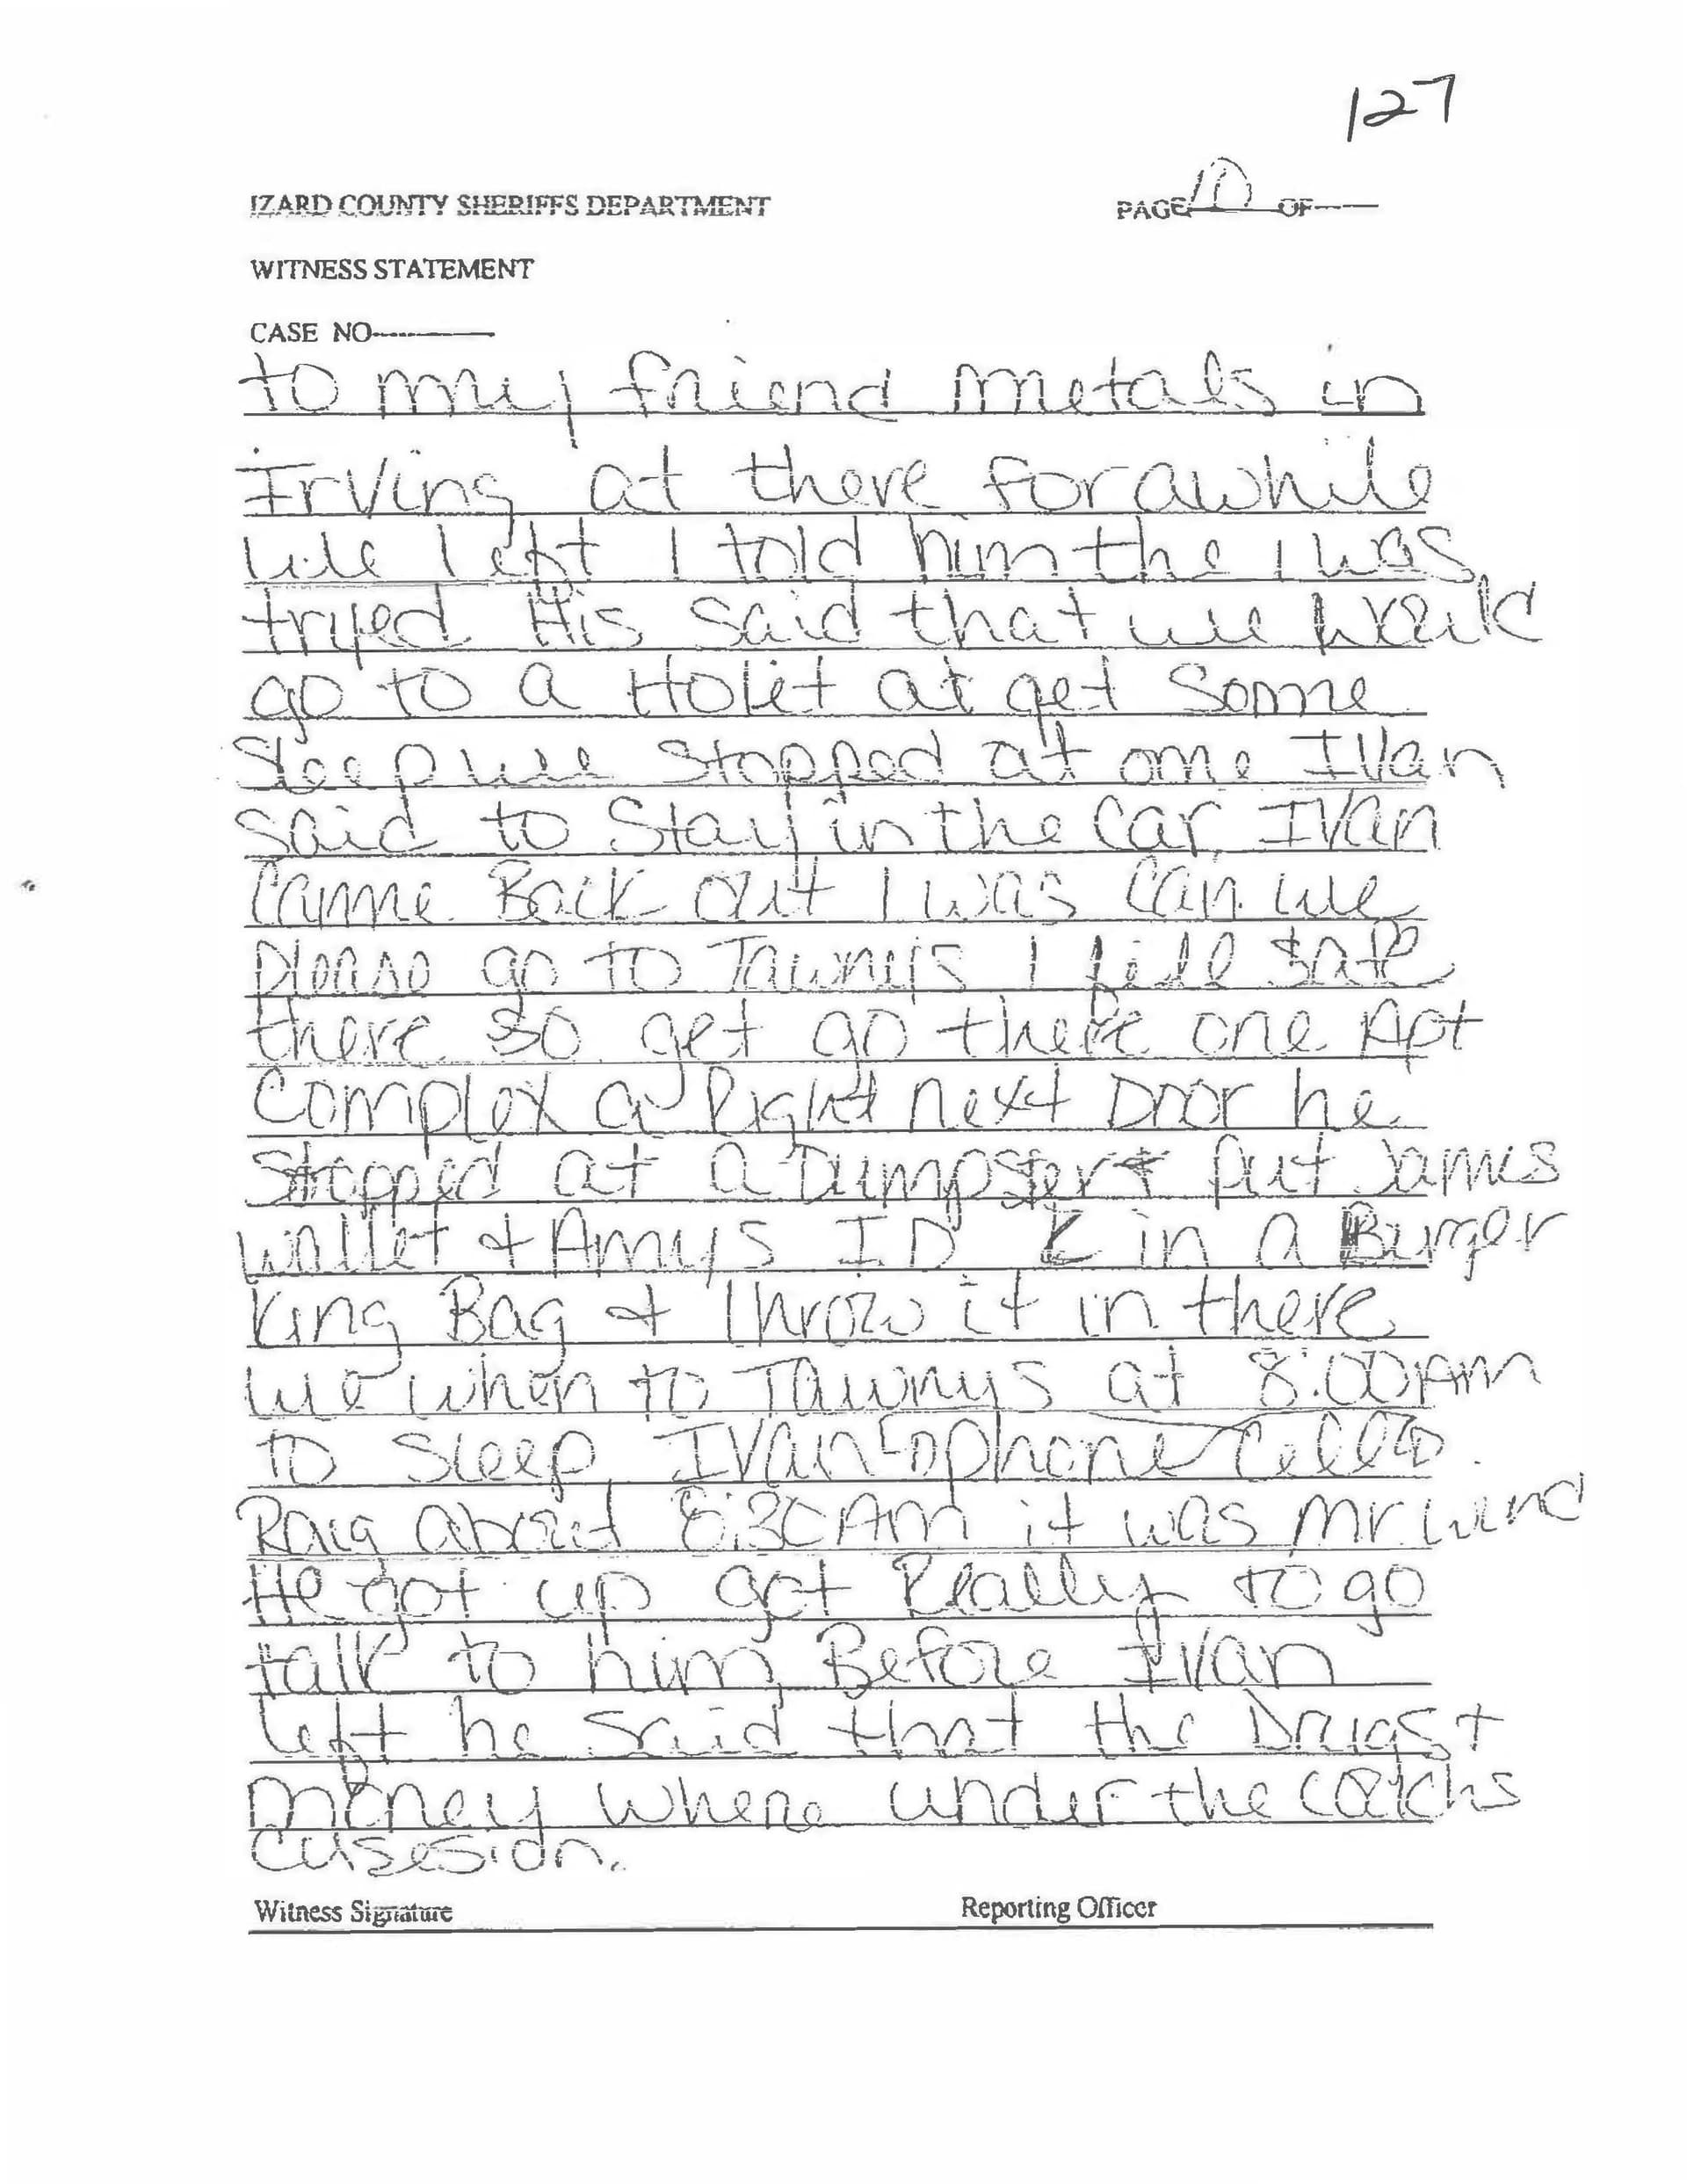 127
IZARD COUNTY SHERIFFS DEPARTMENT PAGE 10 OF
WITNESS STATEMENT
CASE NO
to my friend metals in
Irving at there for awhile
We left I told him the I was
tryed His said that we would
go to a at get some
Sleep we stopped at one Ivan
said to Stay in the Car, Ivan
Came Back out I was can we
please go to Tawnys I feel safe
there so get go there one Apt
Complex a Right next Door he
Stopped at a Dumpster & put James
wallet & Amys I.D in a Burger
King Bag & Throw it in there
we when to Tawnys at 8:00 AM
to Sleep, Ivan phone Cell
Rang about 8:30 AM it was Mr Wind
He got up got Really to go
talk to him, Before Ivan
left he said that the Drugs &
money where under the
Witness Signature Reporting Officer